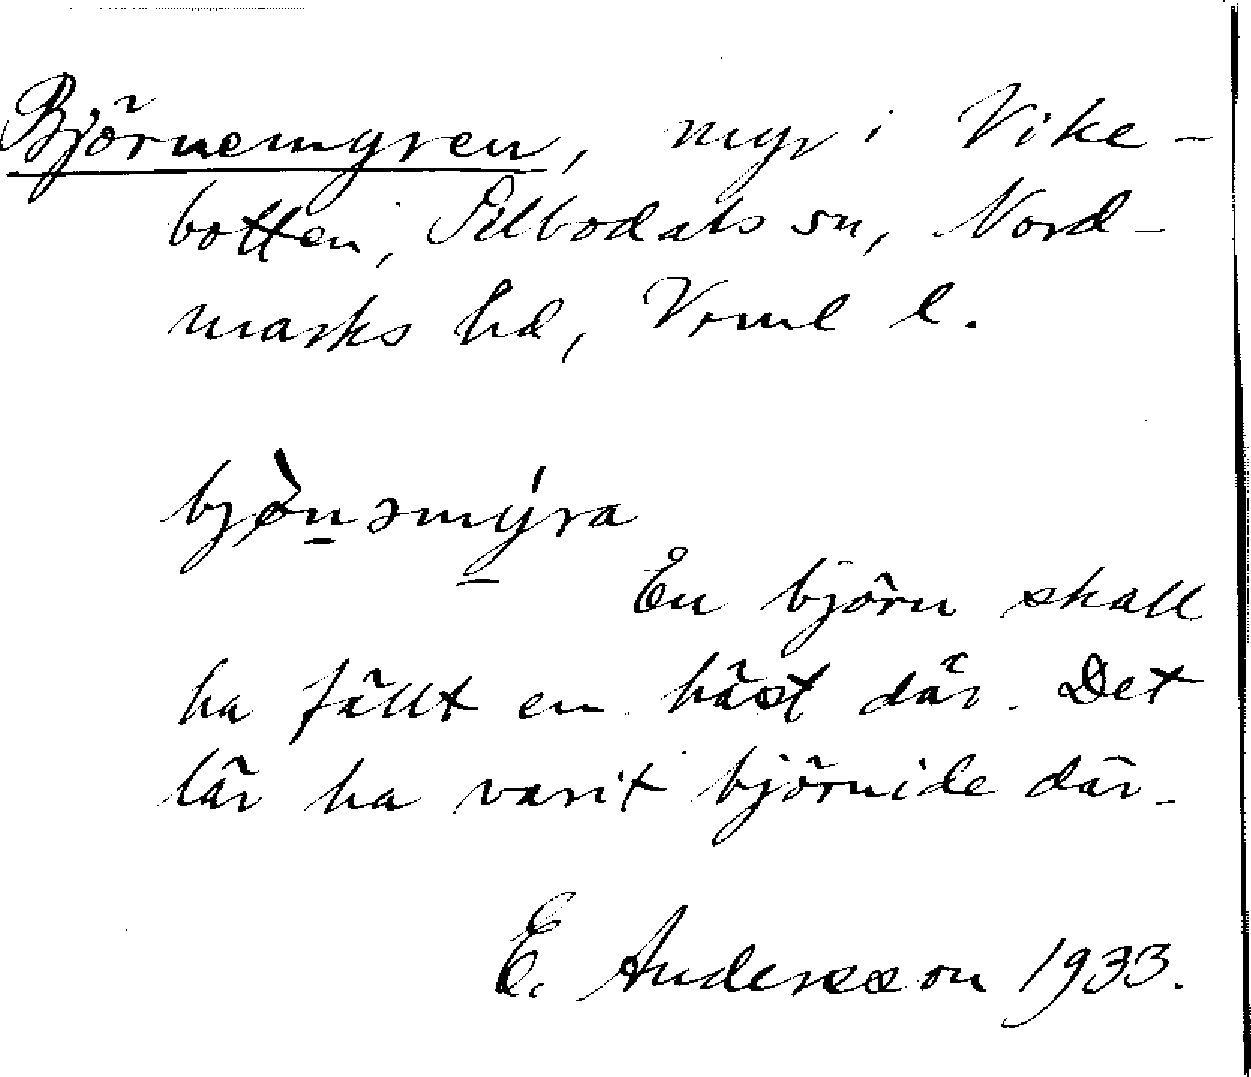 Björnemyren, myr i Vike-
botten, Silbodals sn, Nord-
marks hd, Vrml l.
bjø̀nəmýra
En björn skall
ha fällt en häst där. Det
lär ha varit björnide där.
E. Andersson 1933.